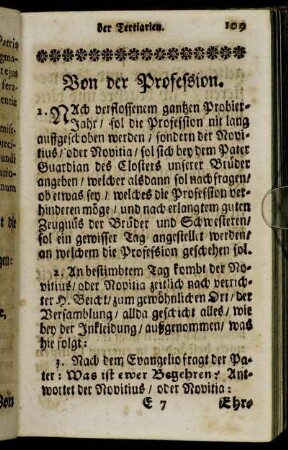 der Tertiarien. 109
Von der Profession.
1. NAch verflossenem gantzen Probier-
Jahr / sol die Profession nit lang
auffgeschoben werden / sondern der Novi-
tius / oder Novitia / sol sich bey dem Pater
Guardian des Closters unserer Brüder
angeben / welcher alsdann sol nachfragen /
ob etwas sey / welches die Profession ver-
hinderen möge / und nach erlangtem guten
Zeugnüs der Brüder und Schwesteren /
sol ein gewisser Tag angestellet werden /
an welchem die Profession geschehen sol.
2. An bestimbtem Tag kombt der No-
vitius / oder Novitia zeitlich nach verrich-
ter H. Beicht / zum gewöhnlichen Ort / der
Versamblung / allda geschicht alles / wie
bey der Inkleidung / außgenommen / was
hie folgt:
3. Nach dem Evangelio fragt der Pa-
ter: Was ist ewer Begehren? Ant-
wortet der Novitius / oder Novitia:
E 7 Ehr-